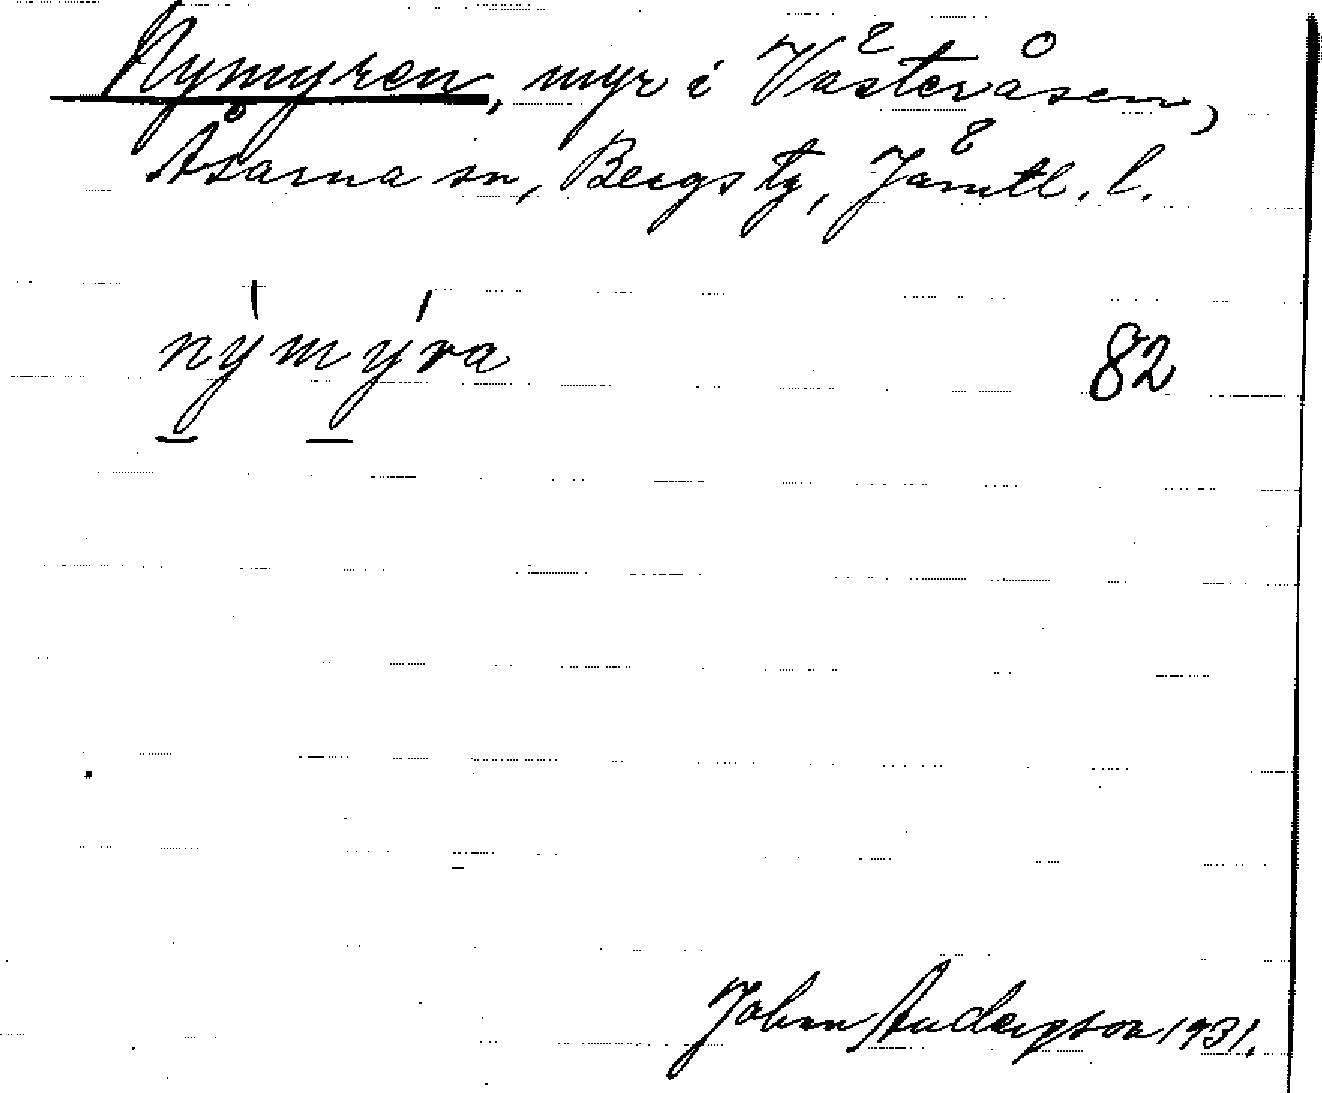 Nymyren, myr i Västeråsen,
Åsarna sn, Bergs tg, Jämtl. l.
nýmýra 82
Johan Anderson 1931.